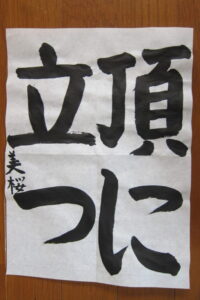 頂に
立つ
美桜